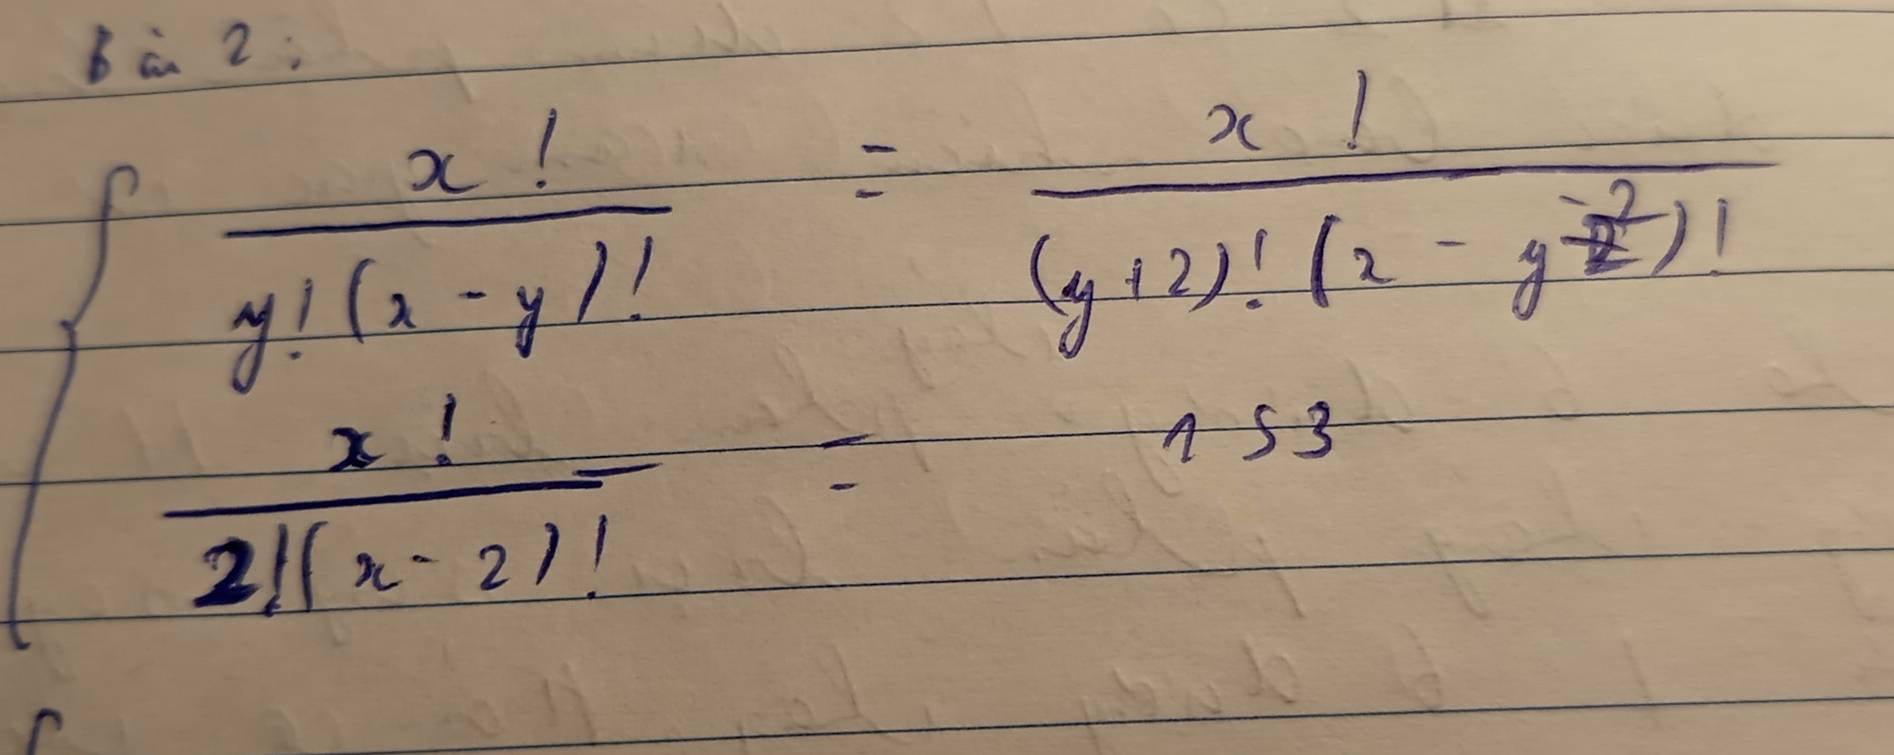 Bài 2:
x! / y!(x - y)! = x! / (y+2)!(x - y - 2)!
x! / 2!(x - 2)! = 153